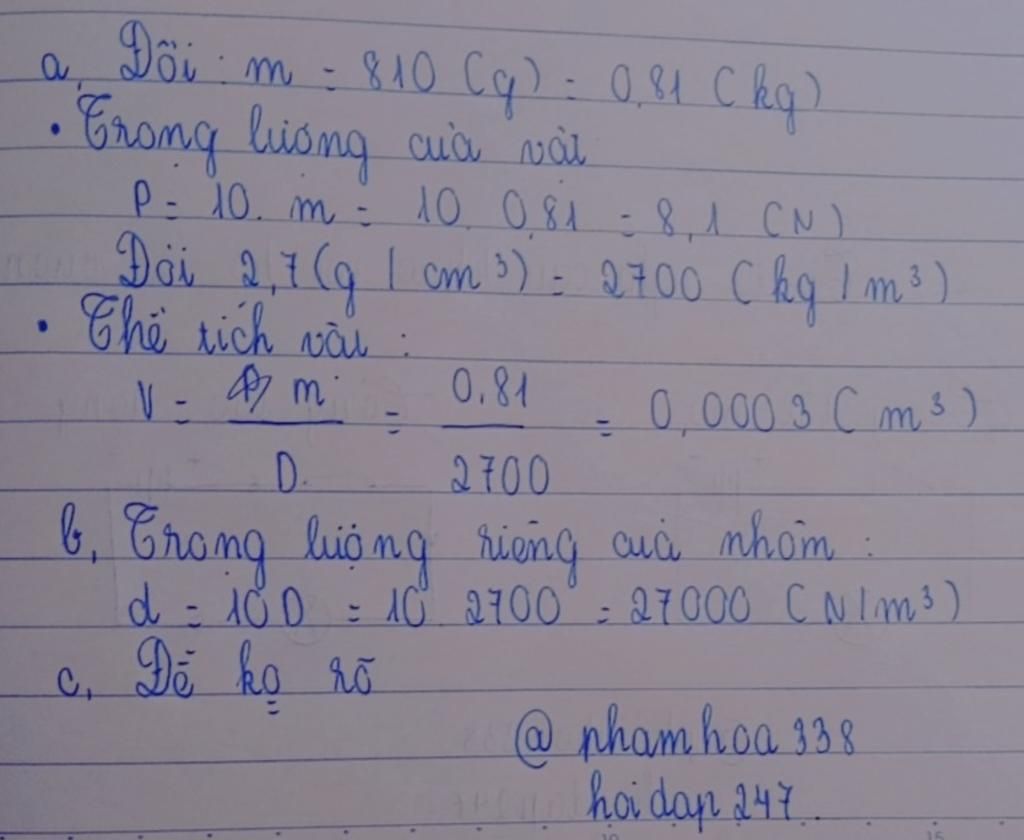 a, Đổi : m = 810 (g) = 0,81 (kg)
• Trọng lượng của vật
P = 10. m = 10. 0,81 = 8,1 (N)
Đổi 2,7 (g / cm³) = 2700 (kg / m³)
• Thể tích vật :
V = m / D = 0,81 / 2700 = 0,0003 (m³)
b, Trọng lượng riêng của nhôm :
d = 10D = 10. 2700 = 27000 (N/m³)
c, Đề ko rõ
@ phamhoa 338
hoidap 247